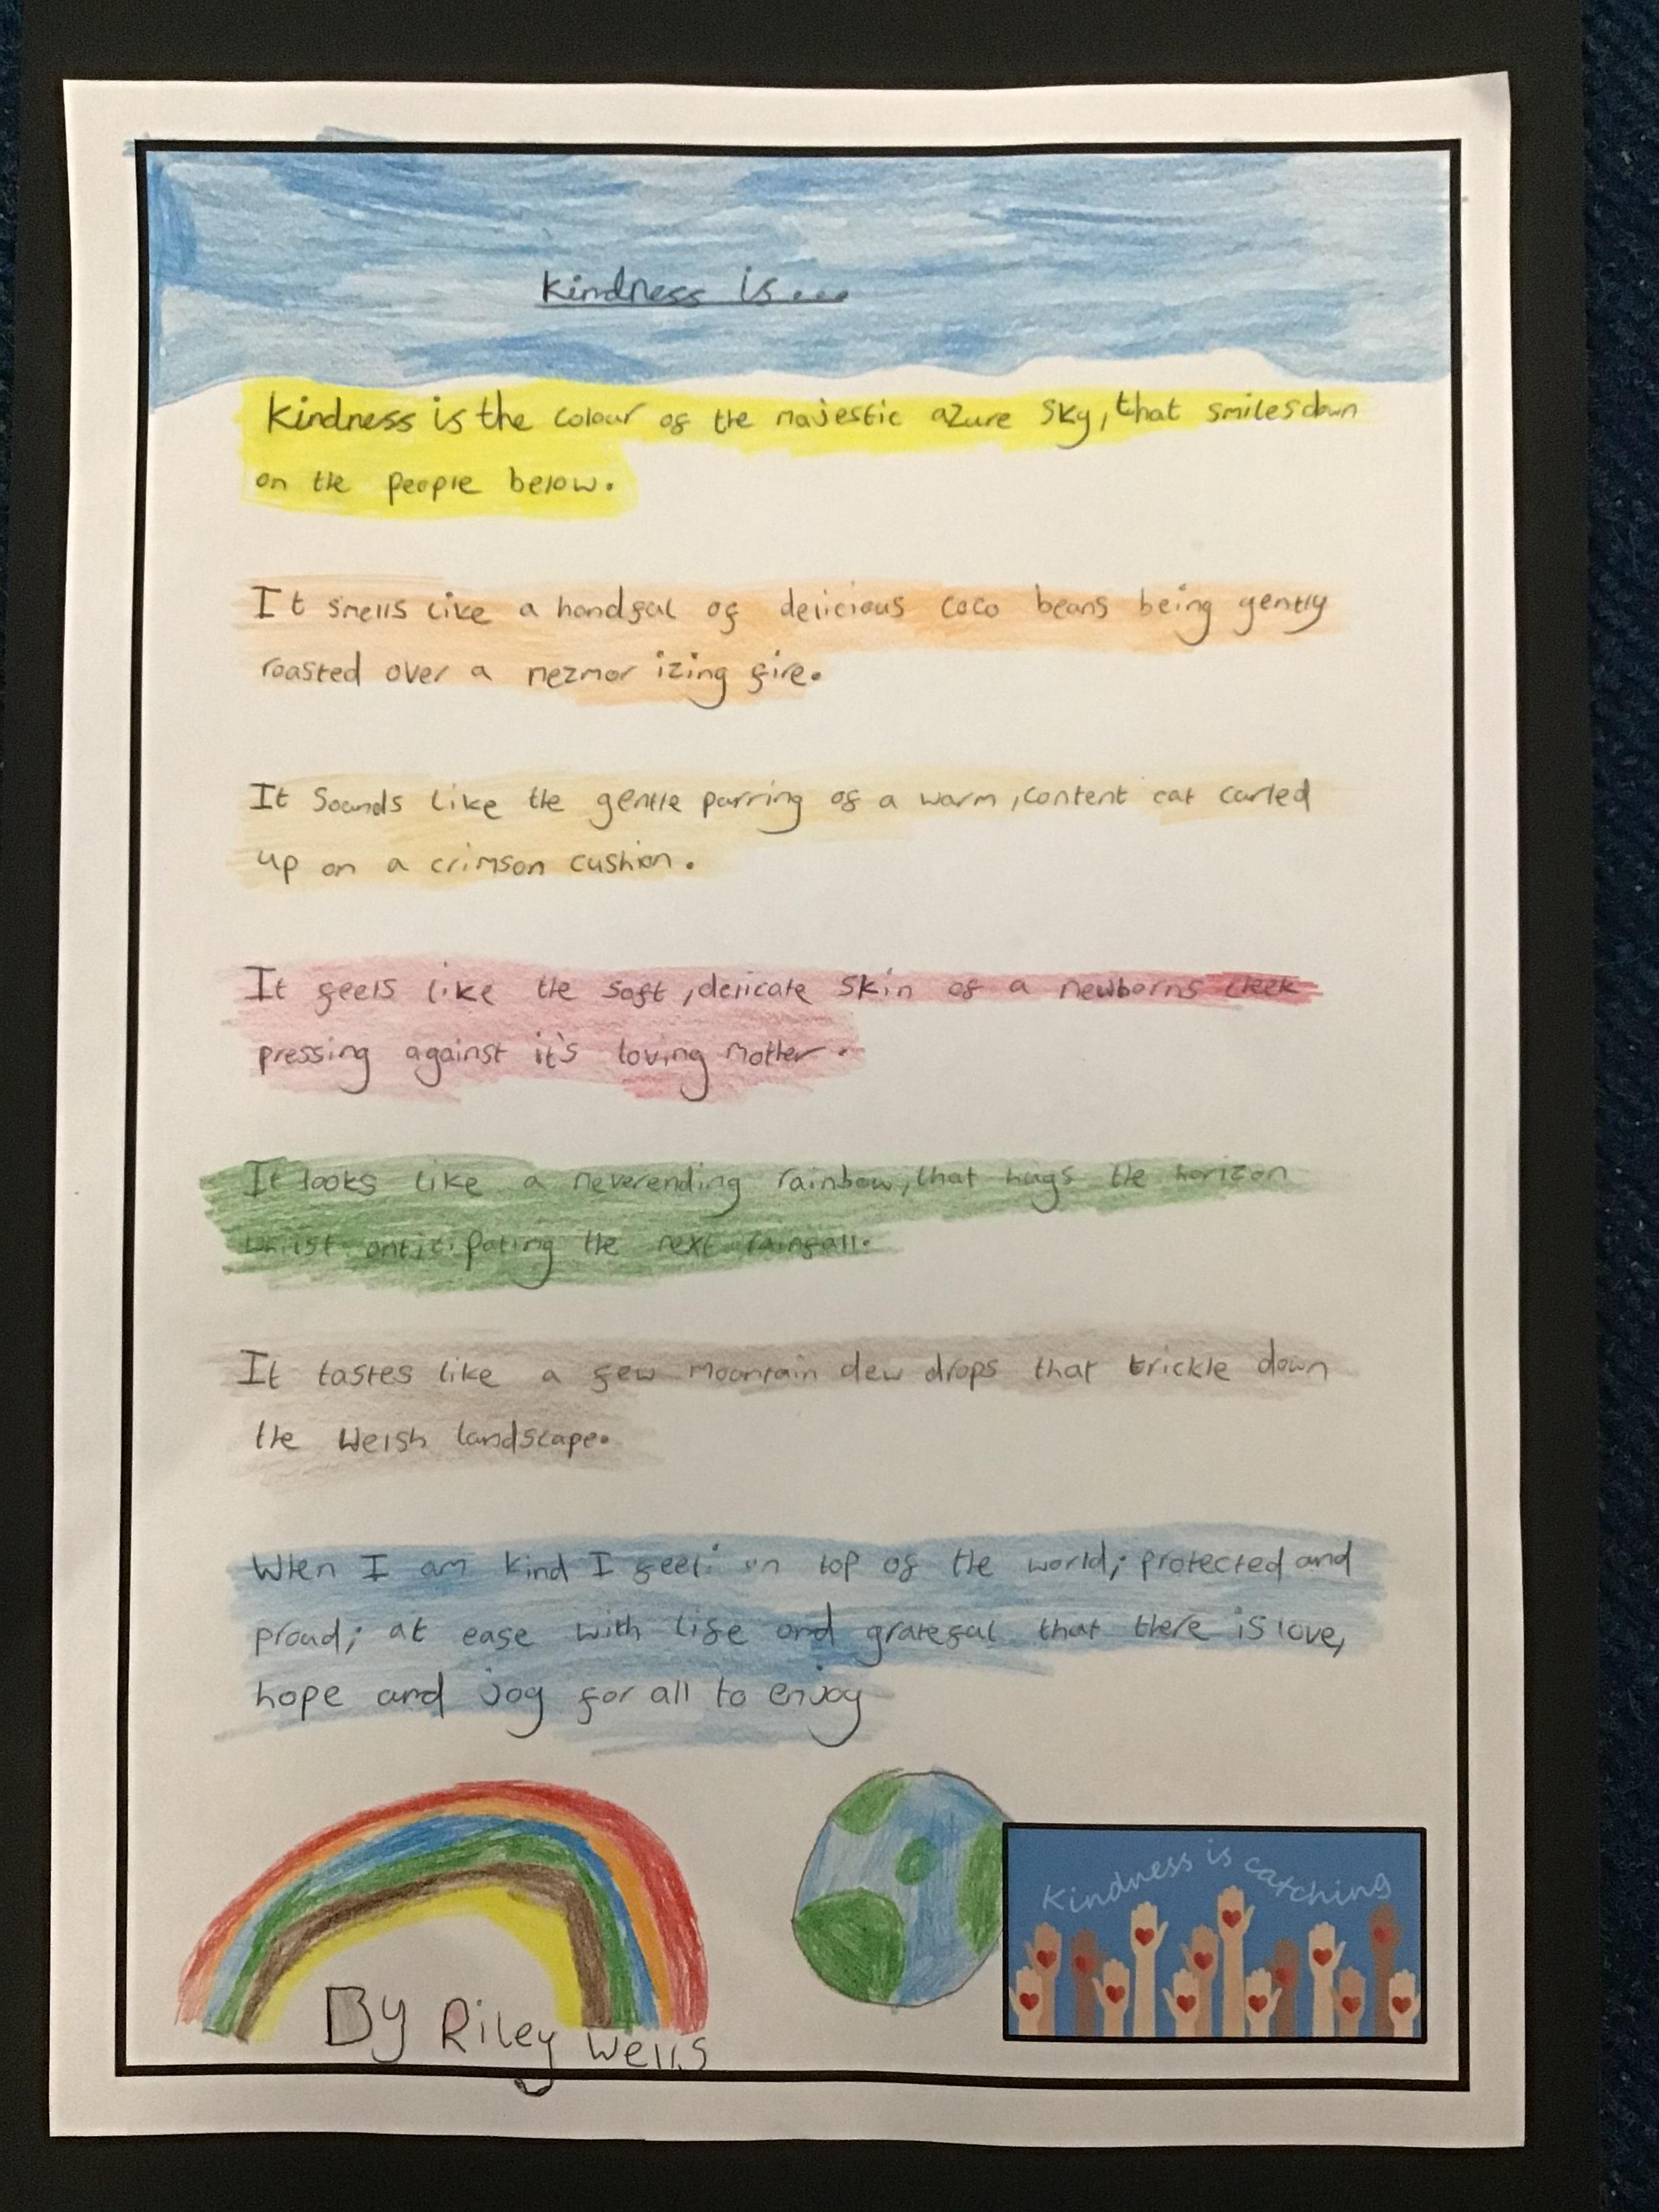 Kindness is...
Kindness is the colour of the majestic azure sky, that smiles down
on the people below.
It smells like a handful of delicious coco beans being gently
roasted over a mezmorizing fire.
It sounds like the gentle purring of a warm, content cat curled
up on a crimson cushion.
It feels like the soft, delicate skin of a newborns cheek
pressing against it's loving mother.
It looks like a neverending rainbow, that hugs the horizon
whilst anticipating the next rainfall.
It tastes like a few mountain dew drops that trickle down
the Welsh landscape.
When I am kind I feel: on top of the world; protected and
proud; at ease with life and grateful that there is love,
hope and joy for all to enjoy
Kindness is catching
By Riley Wells